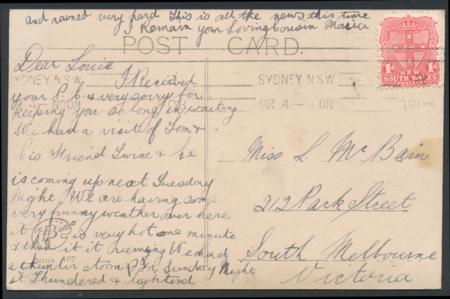 and rained very hard This is all the news this time
I Remain your Loving Cousin
POST CARD.
Dear Louie
SYDNEY N.S.W.
NOON
SYDNEY N.S.W.
MR 4 NOON
NEW
SOUTH WALES
I Recived
your P.C. & very sorry for
keeping you so long in waiting
We had a visit of Tom &
his Friend Twice & he
is coming up next Tuesday
Night We are having some
very funny weather over here
it is very hot one minute
& then it raining We had
a thunder storm on Sunday Night
it Thundered & lightend
Miss L. McBain
212 Park Street
South Melbourne
Victoria